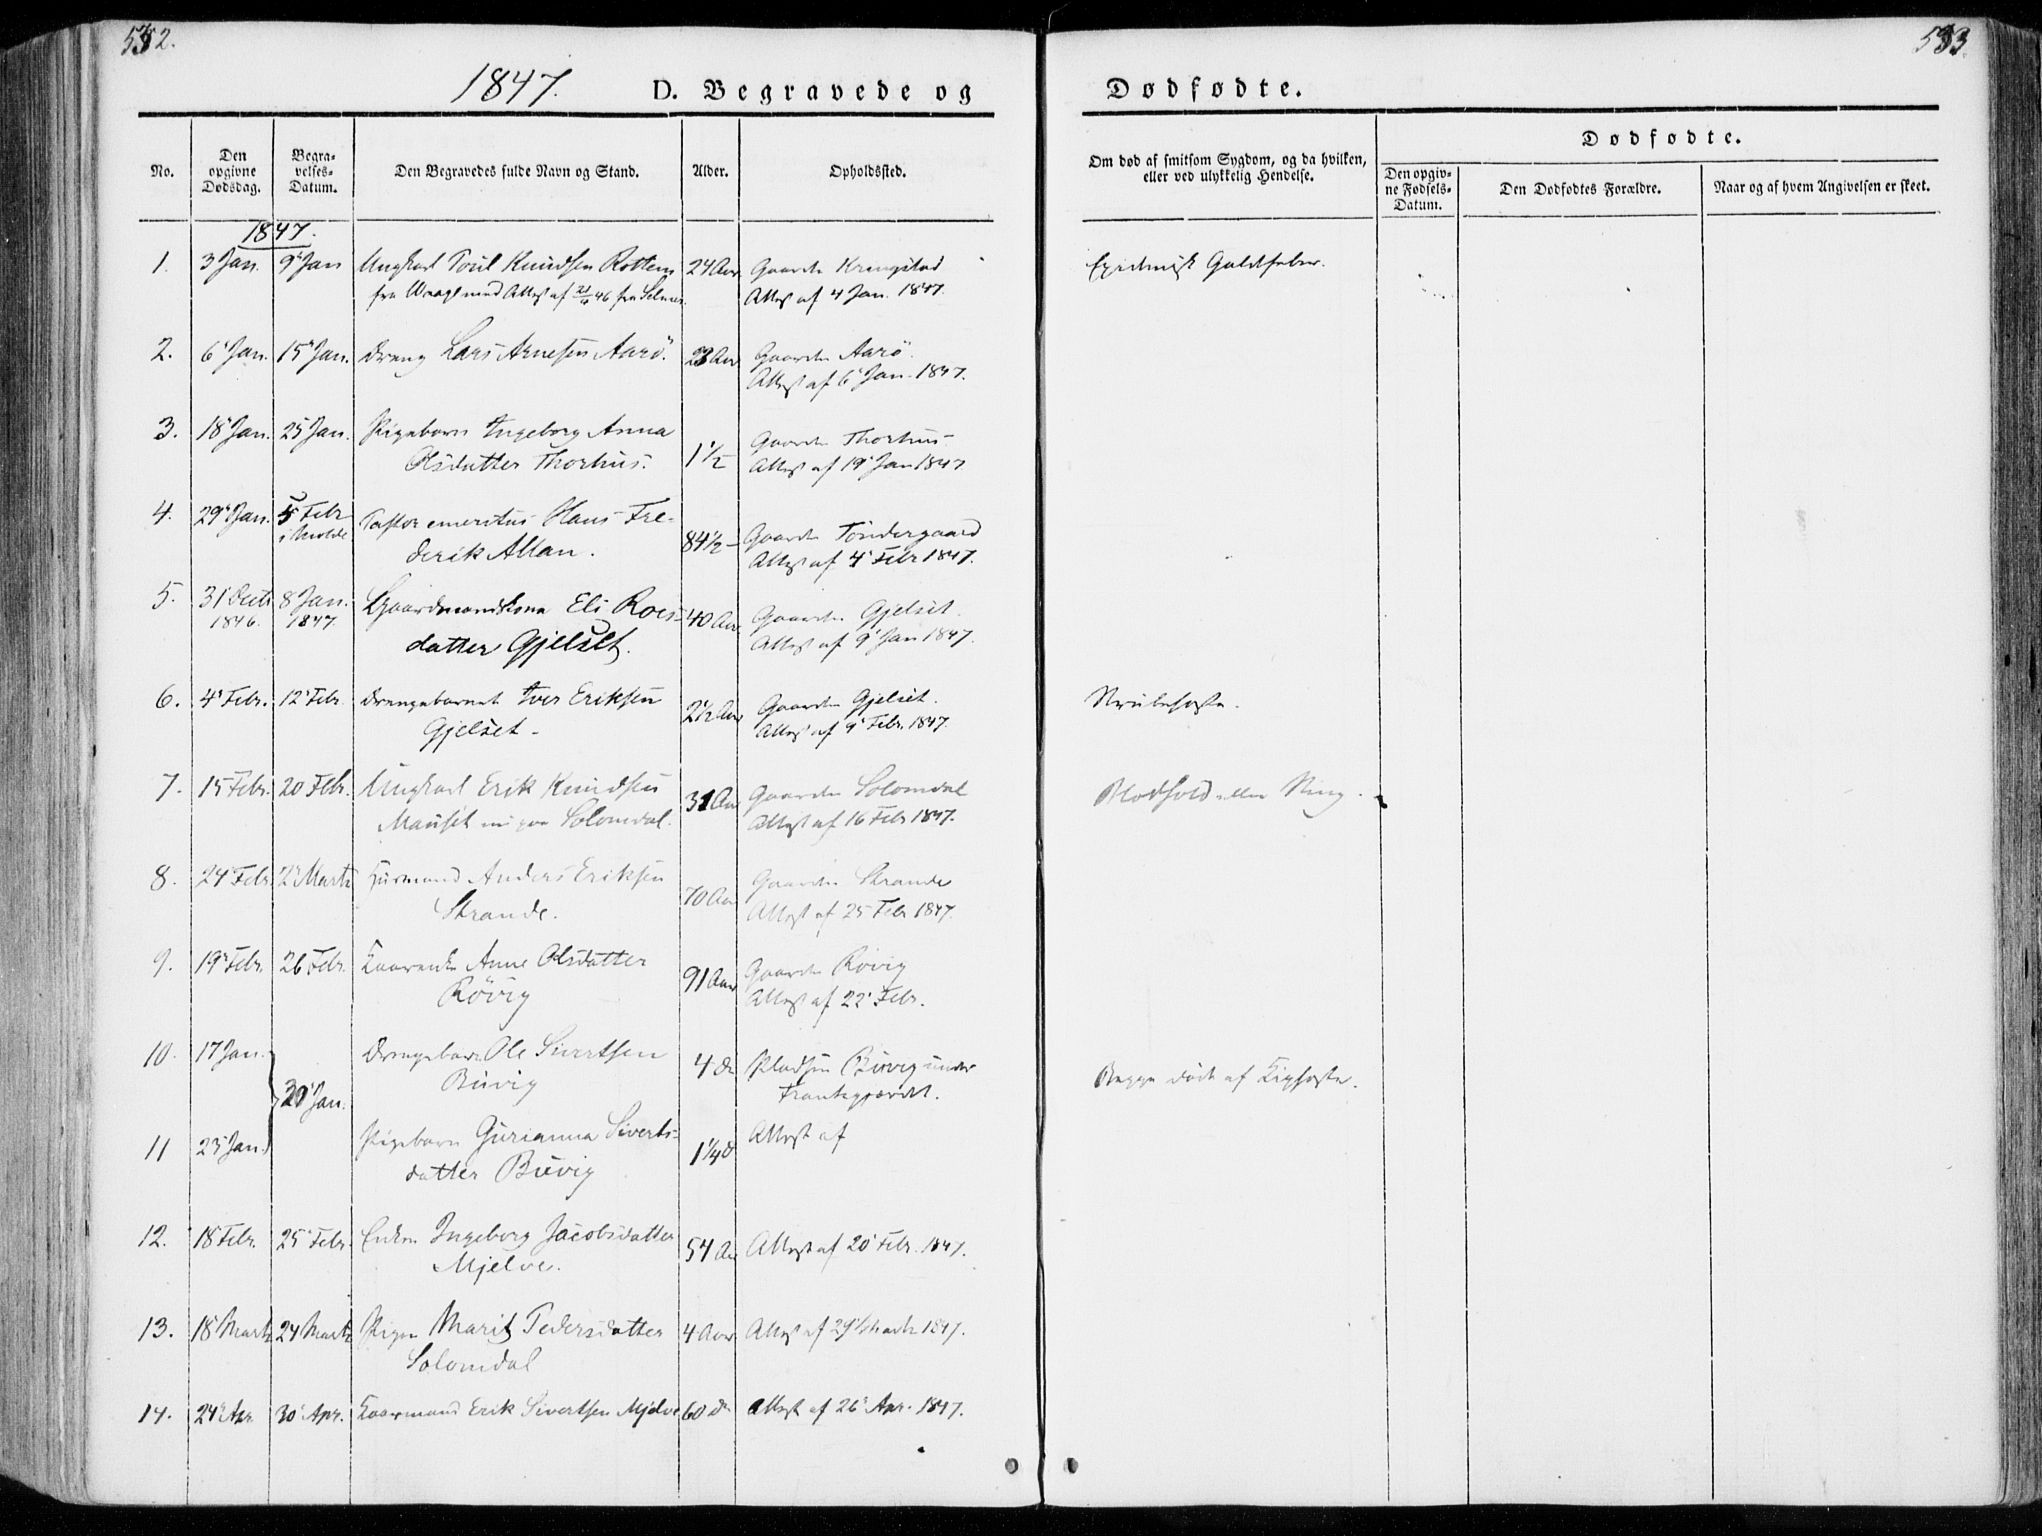 532.
533.
1847. D. Begravede og Dødfødte.
No.
Den opgivne Dødsdag.
Begravelses-Datum.
Den Begravedes fulde Navn og Stand.
Alder.
Opholdssted.
Om død af smitsom Sygdom, og da hvilken, eller ved ulykkelig Hendelse.
Dødfødte.
Den opgivne Fødsels-Datum.
Den Dødfødtes Forældre.
Naar og af hvem Angivelsen er skeet.
1847.
1. 3 Jan. 9 Jan Ungkarl Poul Knudsen 24 Aar Gaarden Kringstad Epidemisk Galdfeber.
fra WaagE med Attest af fra
Attest af 4 Jan. 1847.
2. 6 Jan. 15 Jan. Dreng Lars Arnesen Aarö. Aar Gaarden Aarö.
Attest af 6 Jan. 1847.
3. 18 Jan. 25 Jan. Pigebarn Ingeborg Anna 1½ Gaarden Thorhus
Olsdatter Thorhus. Attest af 19 Jan 1847
4. 29 Jan. 5 Febr i Molde Pastor emeritus Hans Fre-
derik Allan. 84½ Gaarden Töndergaard
Attest af 4 Febr 1847.
5. 31 Decbr 1846. 8 Jan. 1847. Gaardmandskona Eli Roes-
datter Gjelset. 40 Aar Gaarden Gjelset.
Attest af 9 Jan 1847.
6. 4 Febr. 12 Febr Drengebarnet Iver Eriksen
Gjelset 2½ Aar Gaarden Gjelset.
Attest af 9 Febr. 1847.
Strubehoste.
7. 15 Febr. 20 Febr. Ungkarl Erik Knudsen
Mauset nu paa Solomdal. 31 Aar Gaarden Solomdal
Attest af 16 Febr 1847.
eller Sting.
8. 24 Febr 2 Marts Husmand Anders Eriksen
Strande. 70 Aar Gaarden Strande
Attest af 25 Febr 1847.
9. 19 Febr. 26 Febr. Kaarenke Anne Olsdatter
Rövig 91 Aar Gaarden Rövig
Attest af 22 Febr.
10. 17 Jan. 30 Jan. Drengebarn Ole Sivertsen
Buvig 4 do Pladsen Buvig under
Begge döde af Kighoste.
11 23 Jan. Pigebarn Gurianna Siverts-
datter Buvig 1¼ do Attest af
12. 18 Febr. 25 Febr. Enken Ingeborg Jacobsdatter
Mjelve. 54 Aar Attest af 20 Febr. 1847.
13. 18 Marts 24 Marts Pigen Marit Pedersdatter
Solomdal 4 Aar Attest af 29 Marts 1847.
14. 24 Apr 30 Apr. Kaarmand Erik Sivertsen Mjelve 60 do Attest af 26 Apr. 1847.